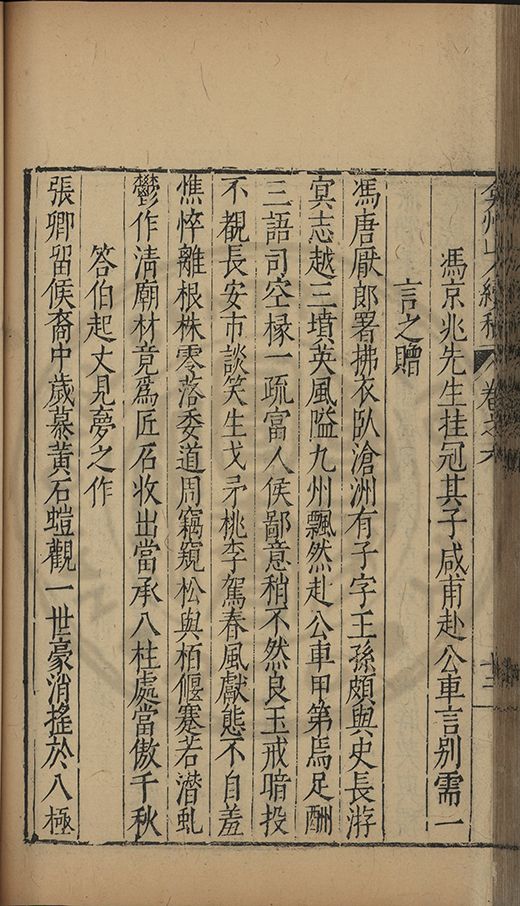 弇州山人續稿 卷之六 十二
馮京兆先生挂冠其子咸甫赴公車言別需一
言之贈
馮唐厭郎署拂衣臥滄洲有子字王孫頗與史長游
冥志越三墳英風隘九州飄然赴公車甲第焉足酬
三語司空掾一疏富人侯鄙意稍不然良玉戒暗投
不覩長安市談笑生戈矛桃李駕春風獻態不自羞
憔悴離根株零落委道周竊窺松與栢偃蹇若潛虬
鬱作清廟材竟爲匠石收出當承八柱處當傲千秋
答伯起丈見夢之作
張卿留侯裔中歲慕黃石螘觀一世豪消搖於八極